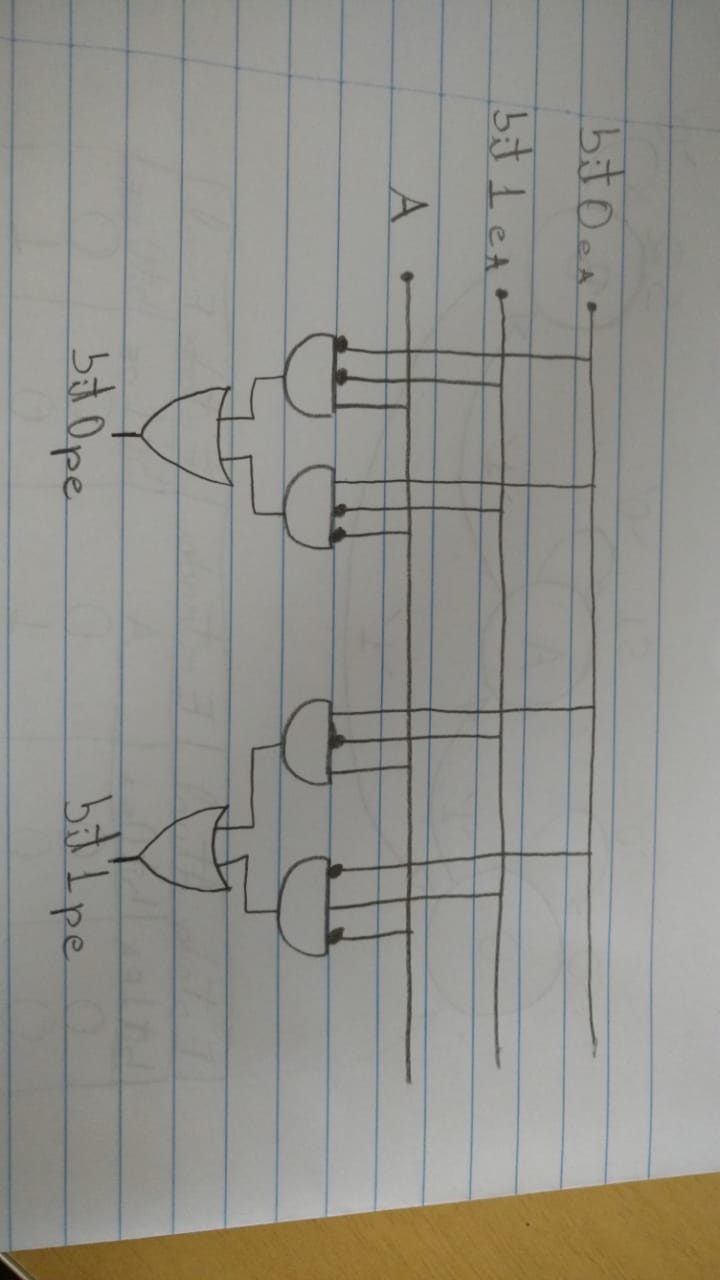 bit 0 eA
bit 1 eA
A
bit 0 pe bit 1 pe